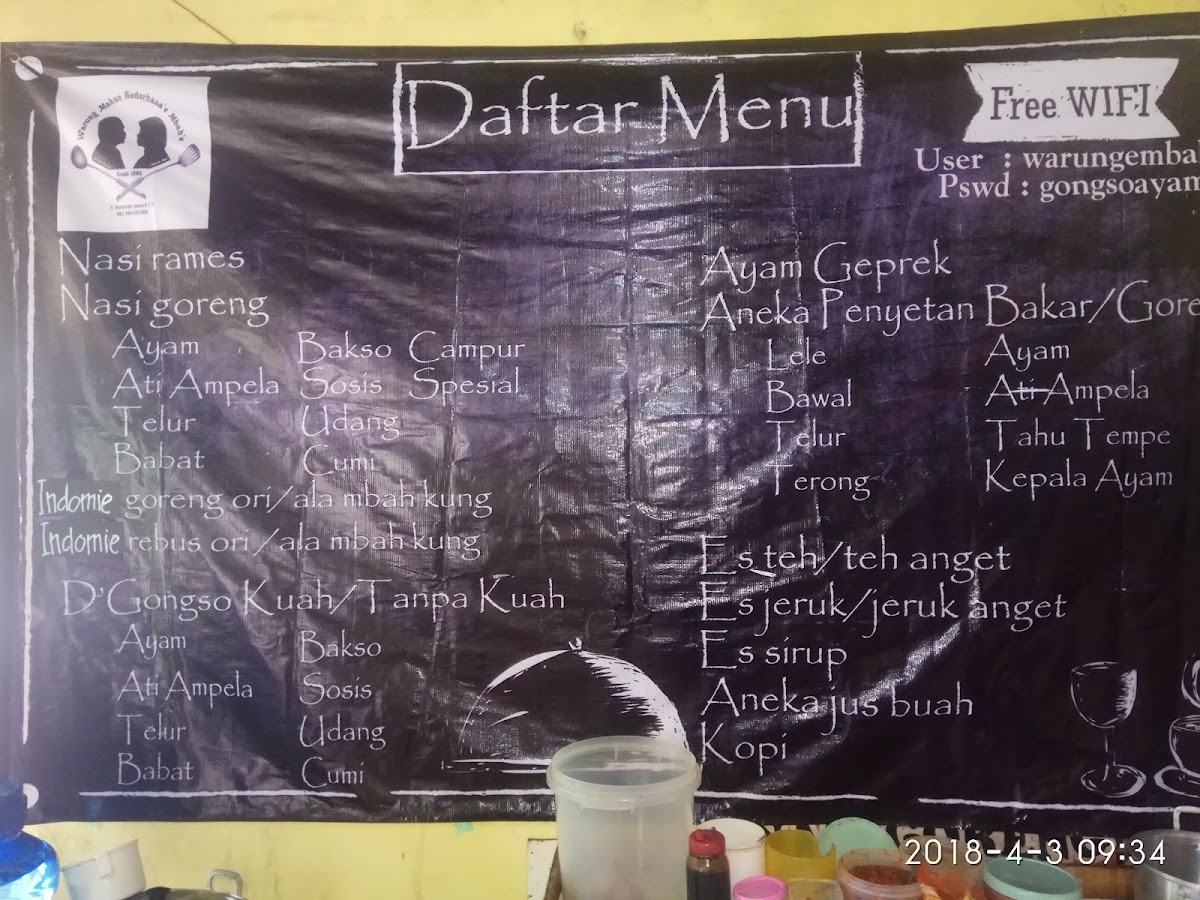 Warung Makan Sederhana'e Mbah'e
Daftar Menu
Free WIFI
User : warungemba
Pswd : gongsoayam
Nasi rames
Nasi goreng
Ayam Bakso Campur
Ati Ampela Sosis Spesial
Telur Udang
Babat Cumi
Indomie goreng ori/ala mbah kung
Indomie rebus ori/ala mbah kung
D'Gongso Kuah/Tanpa Kuah
Ayam Bakso
Ati Ampela Sosis
Telur Udang
Babat Cumi
Ayam Geprek
Aneka Penyetan Bakar/Gore
Lele Ayam
Bawal Ati Ampela
Telur Tahu Tempe
Terong Kepala Ayam
Es teh/teh anget
Es jeruk/jeruk anget
Es sirup
Aneka jus buah
Kopi
2018-4-3 09:34